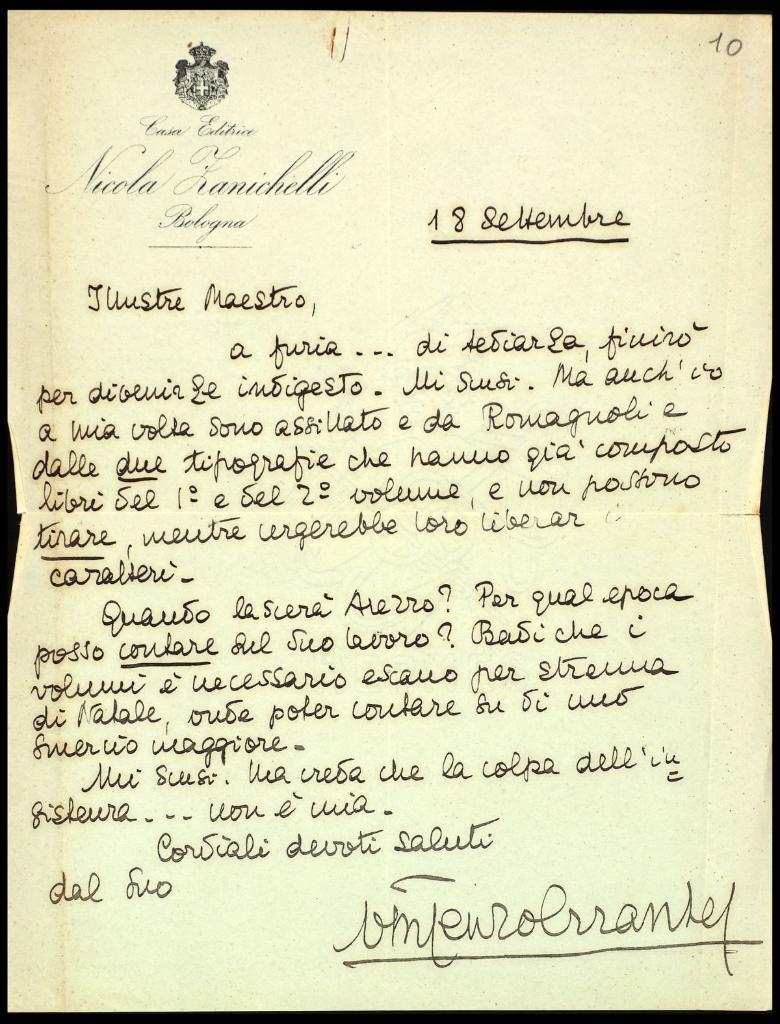 10
Casa Editrice
Nicola Zanichelli
Bologna
18 Settembre
Illustre Maestro,
a furia ... di tediarLa, finirò
per divenirLe indigesto. Mi scusi. Ma anch'io
a mia volta sono assillato e da Romagnoli e
dalle due tipografie che hanno già composto
libri del 1º e del 2º volume, e non possono
tirare, mentre urgerebbe loro liberar i
caratteri.
Quando lascerà Arezzo? Per qual epoca
posso contare sul Suo lavoro? Badi che i
volumi è necessario escano per strenna
di Natale, onde poter contare su di uno
smercio maggiore.
Mi scusi. Ma creda che la colpa dell'in=
sistenza ... non è mia.
Cordiali devoti saluti
dal Suo
Vincenzo Errante